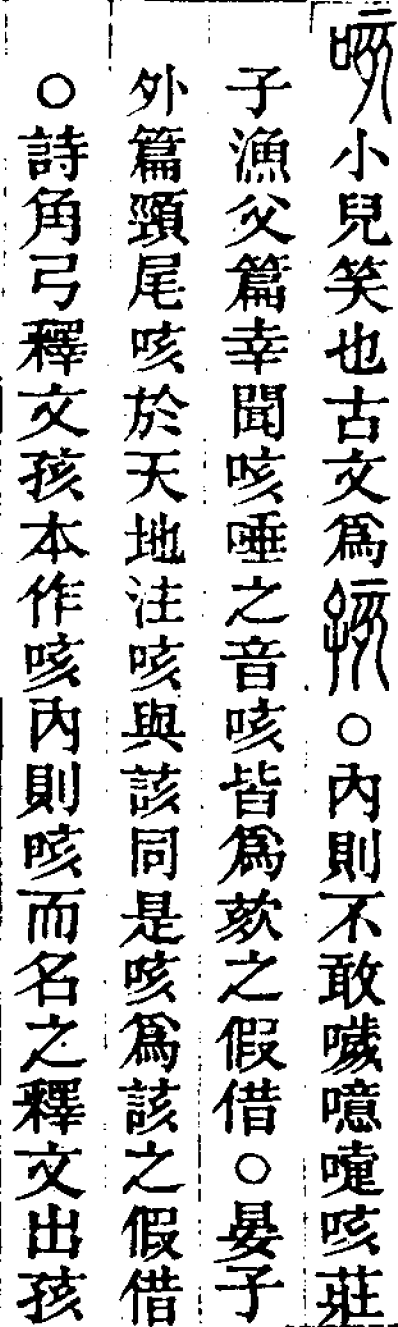 咳小兒笑也古文爲孩○內則不敢噦噫嚏咳莊
子漁父篇幸聞咳唾之音咳皆爲欬之假借○晏子
外篇頸尾咳於天地注咳與該同是咳爲該之假借
○詩角弓釋文孩本作咳內則咳而名之釋文出孩